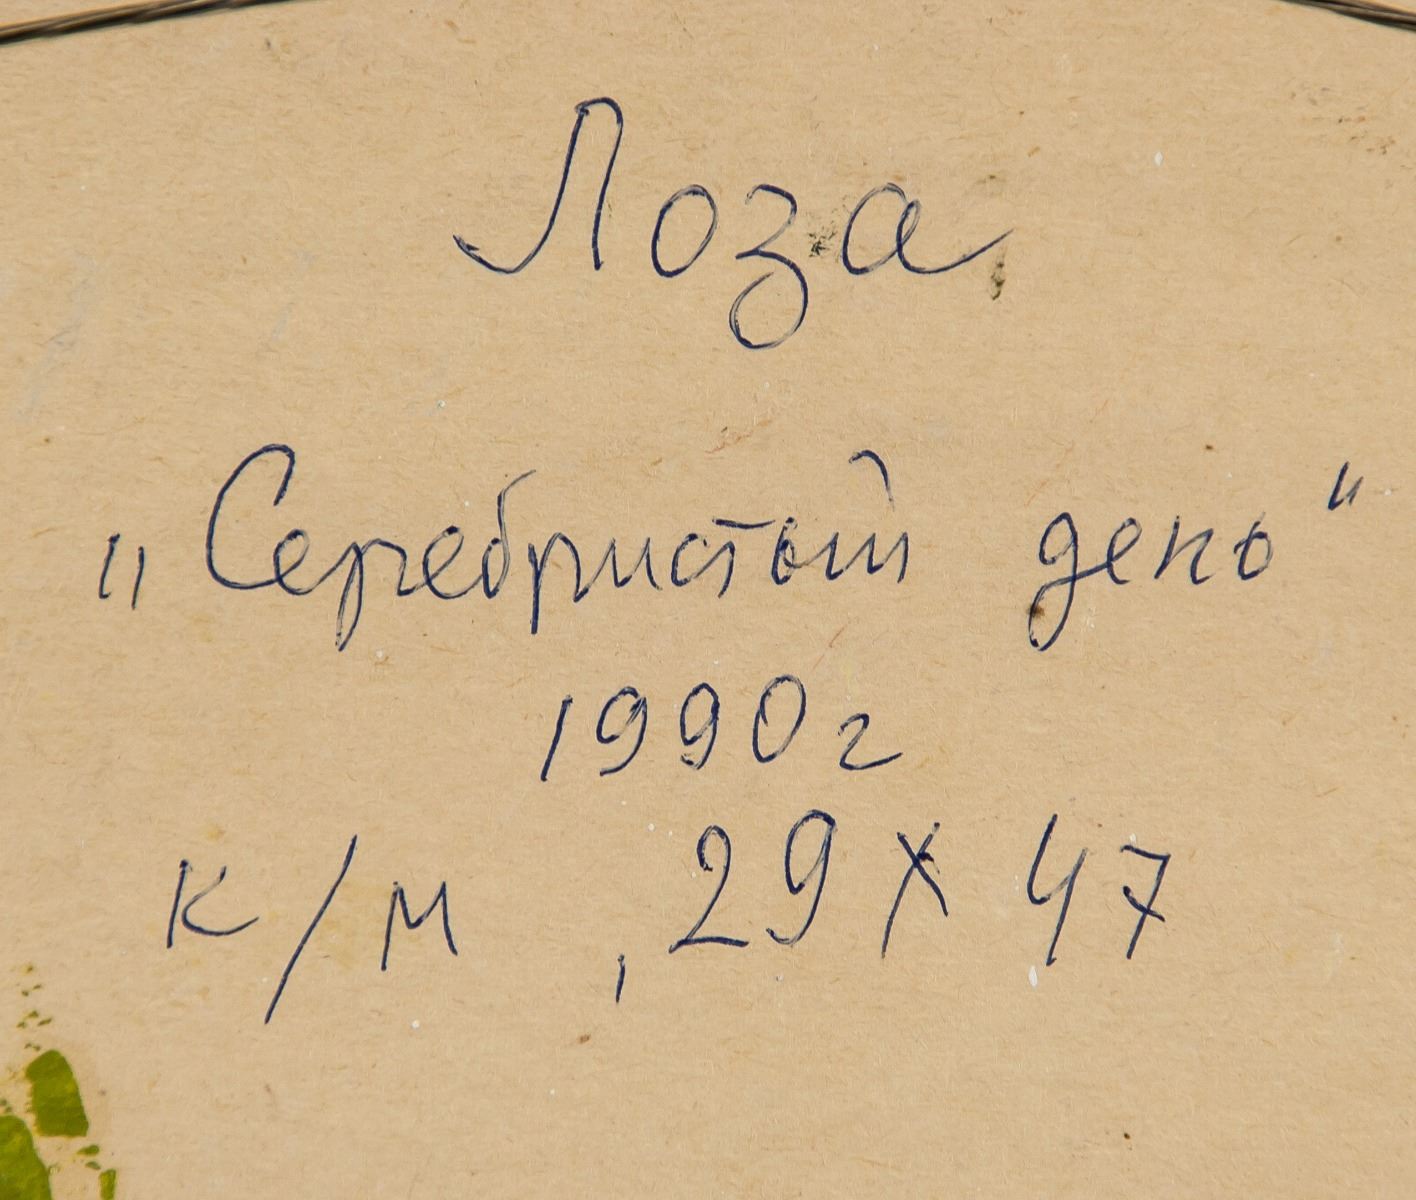 Лоза
„Серебристый день“
1990 г
к/м, 29 х 47